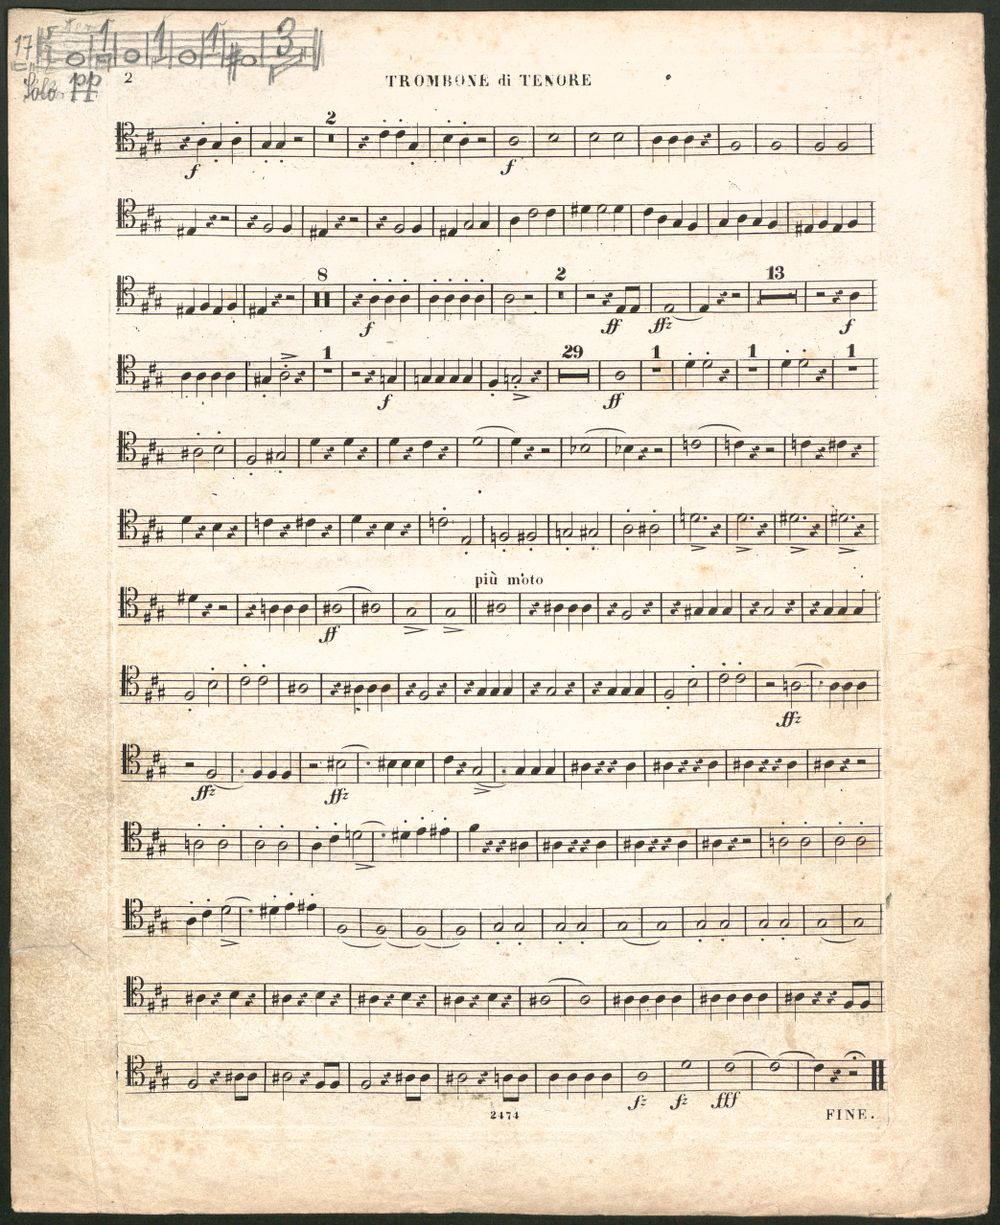 17 1 1 1 3
Solo. pp
2 TROMBONE di TENORE
2
f f
8 2 13
f ff ffz f
1 29 1 1 1
f ff
più moto
ff
ffz
ffz ffz
fz fz fff
2474 FINE.